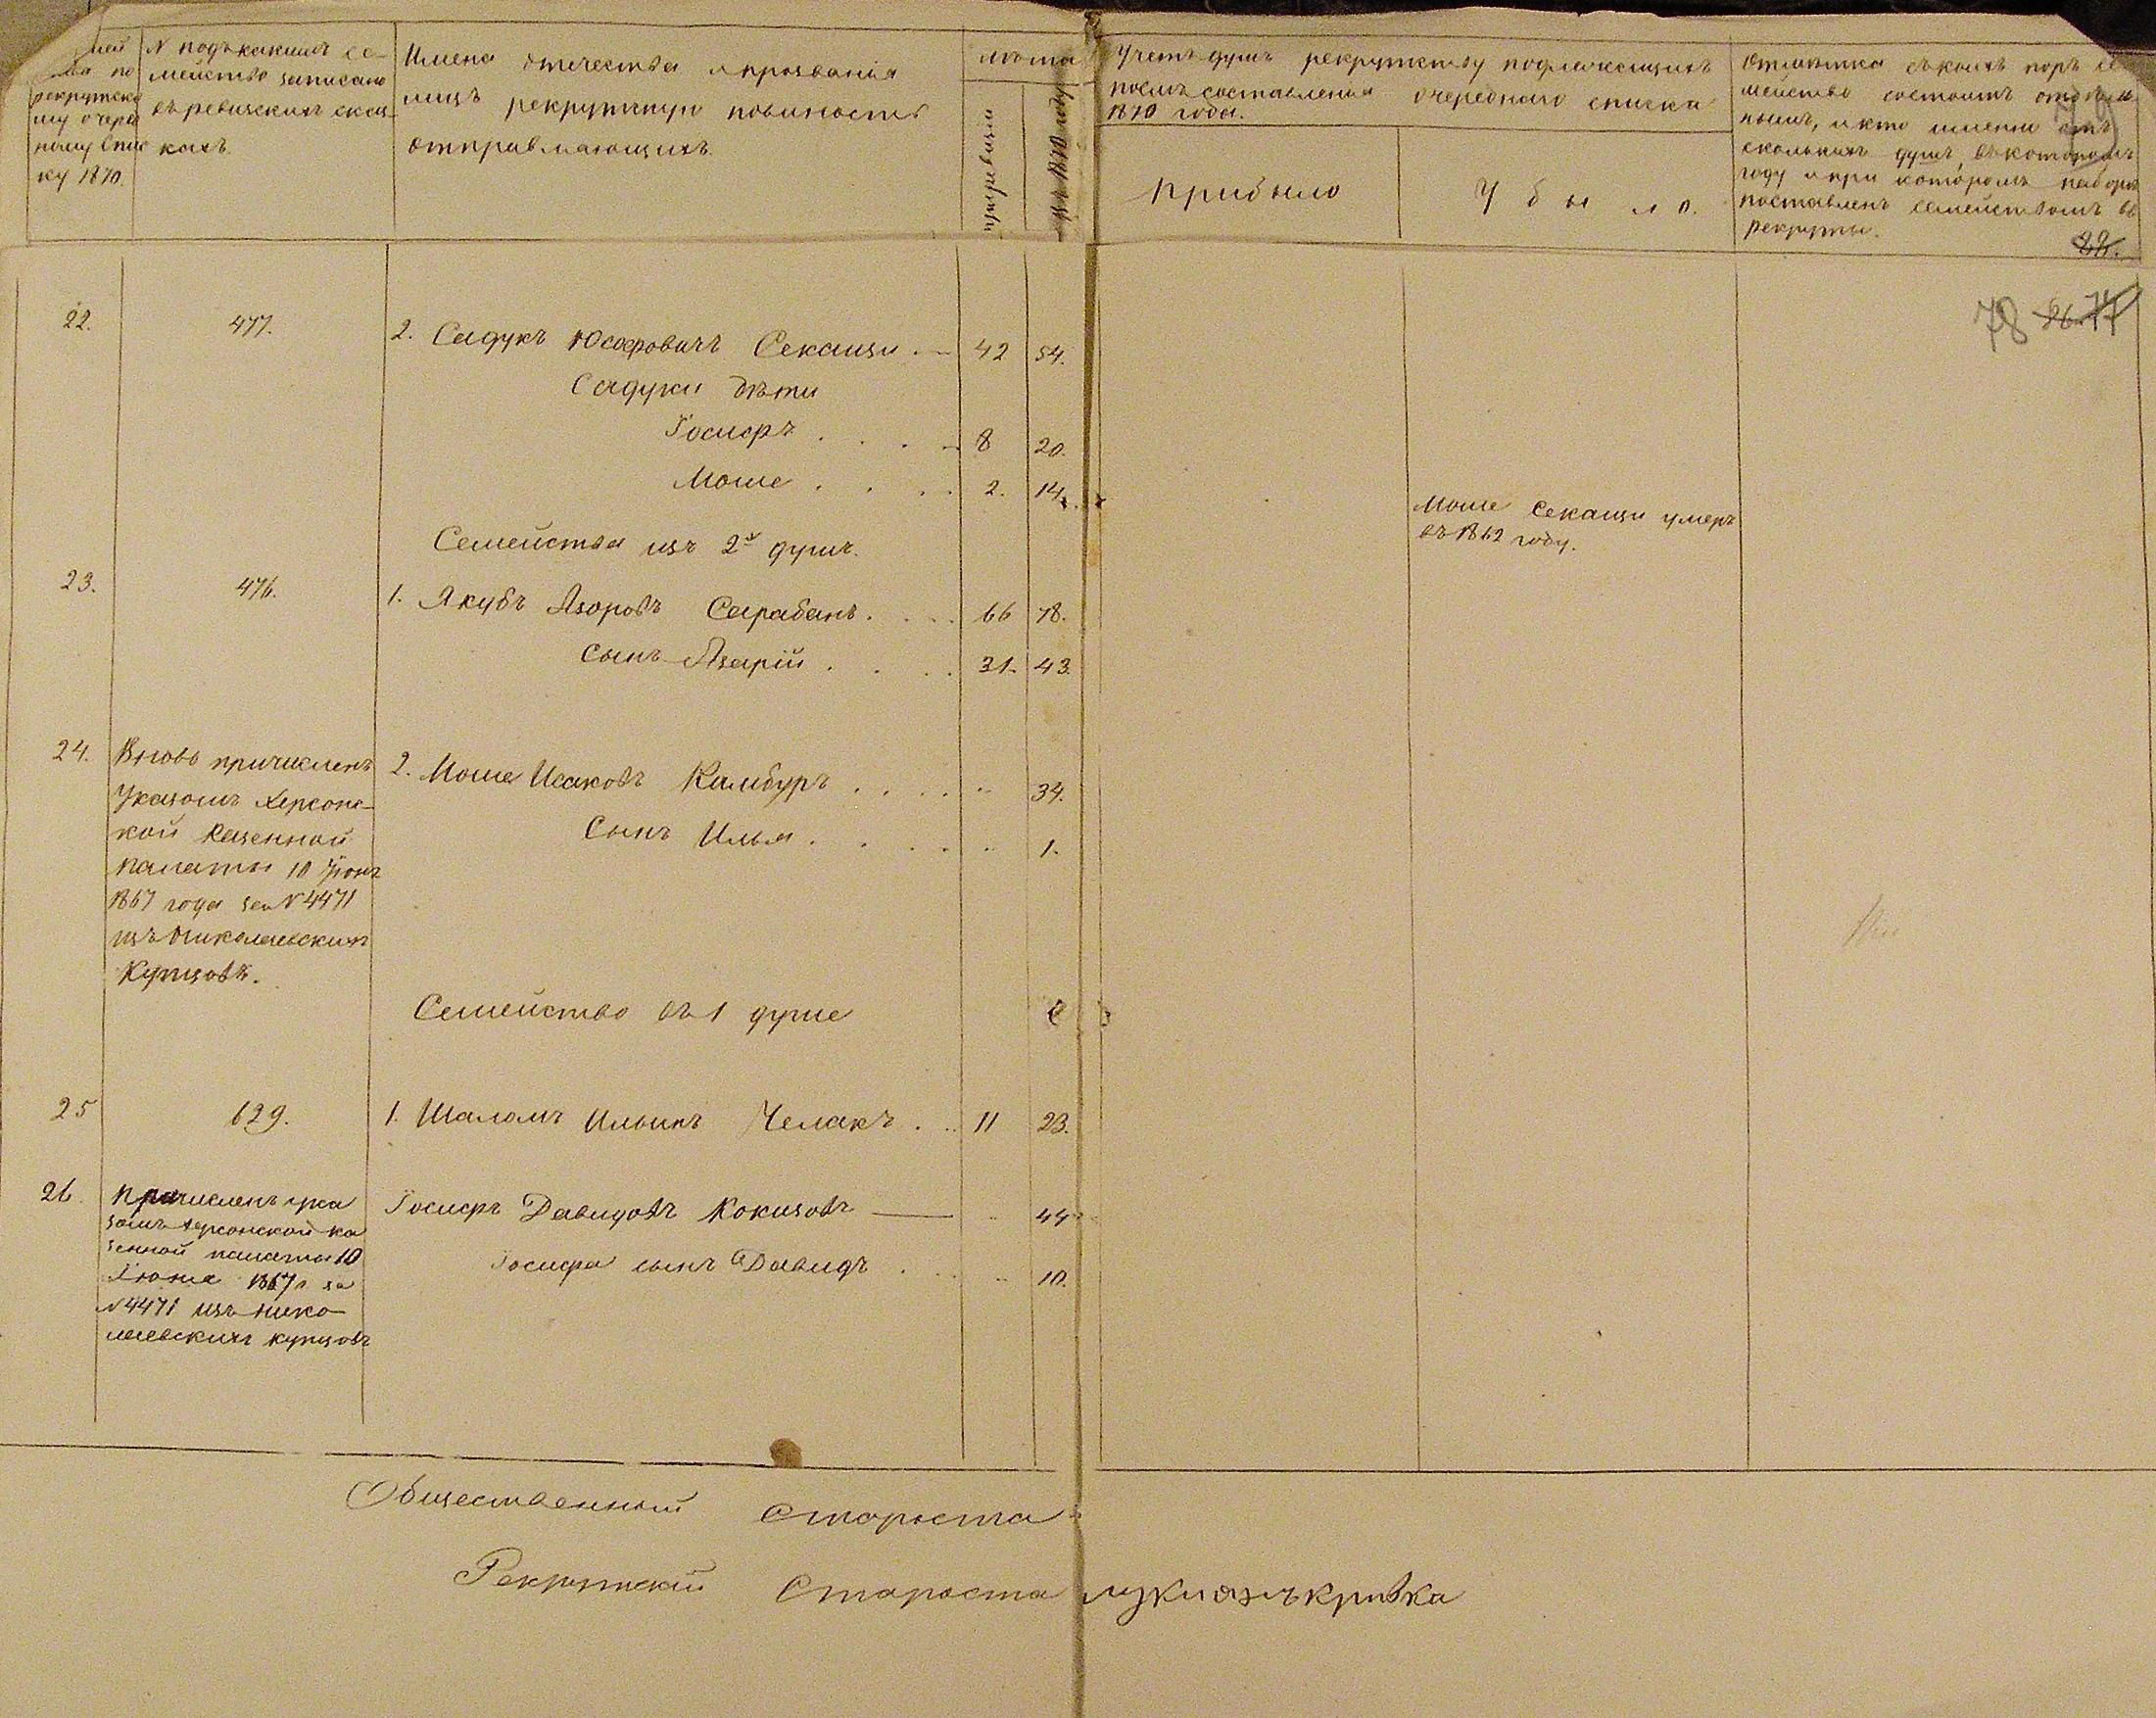 мей
по
рекрутско
му очеред
ному спис
ку 1870.
N подъ какимъ се-
мейство записано
въ ревизскихъ сказ-
кахъ.
Имена отчества и прозванія
лицъ рекрутскую повиность
отправляющихъ.
лѣта
по ревизіи
къ 1870 году
Учетъ душъ рекрутству подлежащихъ
послѣ составленія очереднаго списка
1870 года.
прибыло
Убыло.
Отмѣтка съ коихъ поръ се
мейство состоитъ отдѣль
нымъ, и кто именно отъ
сколькихъ душъ, въ которомъ
году и при которомъ наборѣ
поставленъ семействомъ въ
рекруты.
22.
477.
2. Садукъ Юсофовичъ Секаши 42 54.
78 26. 77
Садуки дѣти
Іосифъ 8 20.
Моше 2. 14.
Моше Секаши умеръ
въ 1862 году.
Семейства изъ 2х душъ.
23.
476.
1. Якубъ Азоровъ Сарабанъ 66 78.
сынъ Азарій 31. 43.
24.
Вновь причисленъ
Указомъ Херсонс-
кой Казенной
палаты 10 Іюня
1867 года за N 4471
изъ Николаевскихъ
Купцовъ.
2. Моше Исаковъ Камбуръ 34.
Сынъ Илья 1.
Семейство въ 1 душе
25
629.
1. Шаломъ Ильинъ Челакъ 11 23.
26.
Причисленъ ука
зомъ херсонской ка
зенной палаты 10
Іюня 1867 г. за
N 4471 изъ нико
лаевскихъ купцовъ
Іосифъ Давидовъ Кокизовъ 44
Іосифа сынъ Давидъ 10.
Общественный Староста
Рекрутскій Староста лукианъ кривка